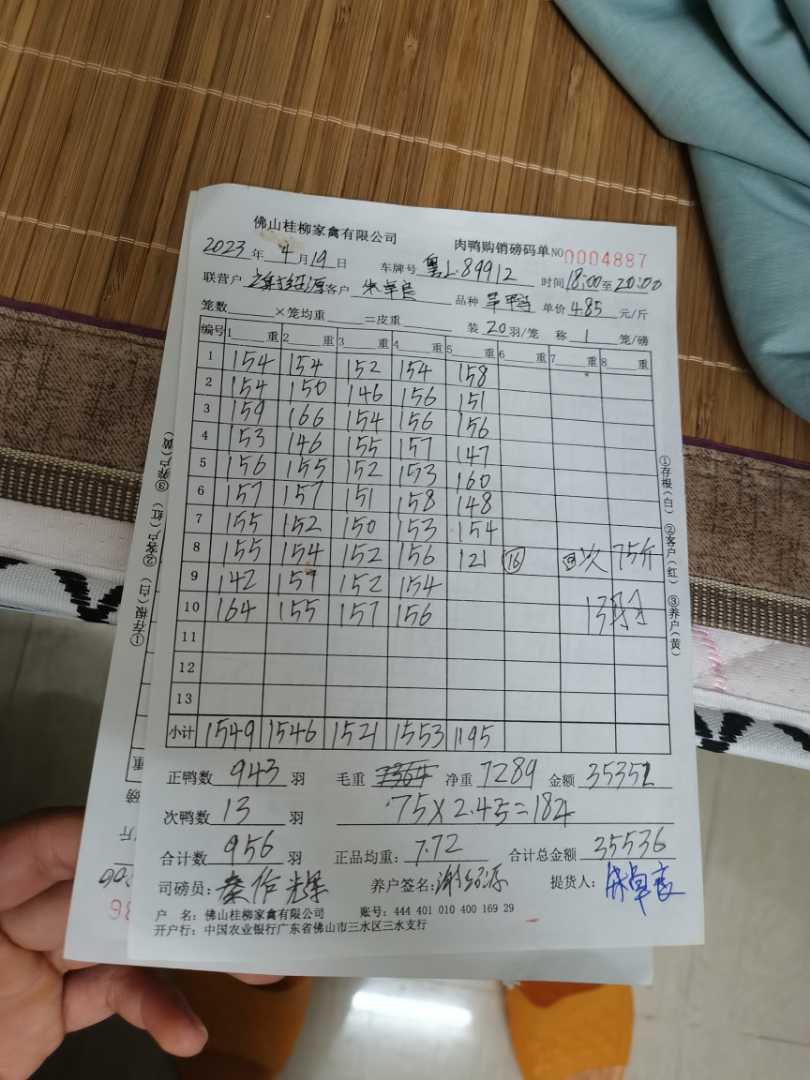 佛山桂柳家禽有限公司 肉鸭购销磅码单 NO 0004887
2023年 4月19日 车牌号 粤L·89912 时间 18:00至20:00
联营户 客户 品种 单价 4.85 元/斤
笼数 ×笼均重 =皮重 装20羽/笼 称 1 笼/磅
编号 1 重 2 重 3 重 4 重 5 重 6 重 7 重 8 重
1 154 154 152 154 158
2 154 150 146 156 151
3 159 166 154 156 156
4 153 146 155 157 147
5 156 155 152 153 160
6 157 157 151 158 148
7 155 152 150 153 154
8 155 154 152 156 121 16 次 75斤
9 142 159 152 154
10 164 155 157 156 13羽
11
12
13
小计 1549 1546 1521 1553 1195
正鸭数 943 羽 毛重 7364 净重 7289 金额 35352
次鸭数 13 羽 75×2.45=184
合计数 956 羽 正品均重: 7.72 合计总金额 35536
司磅员: 养户签名: 谢绍源 提货人:
户 名: 佛山桂柳家禽有限公司 账号: 444 401 010 400 169 29
开户行: 中国农业银行广东省佛山市三水区三水支行
①存根(白) ②客户(红) ③养户(黄)
①存根(白) ②客户(红) ③养户(黄)